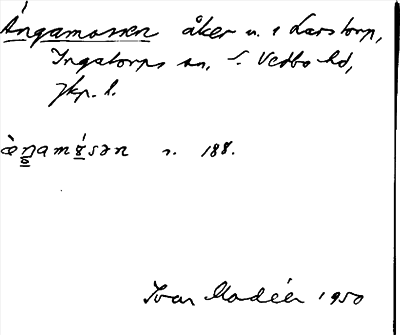 Ångamossen åker u. t Larstorp,
Ingatorps sn. S. Vedbo hd,
Jkp. l.
ằŋamósən s. 188.
Ivar Modéer 1950